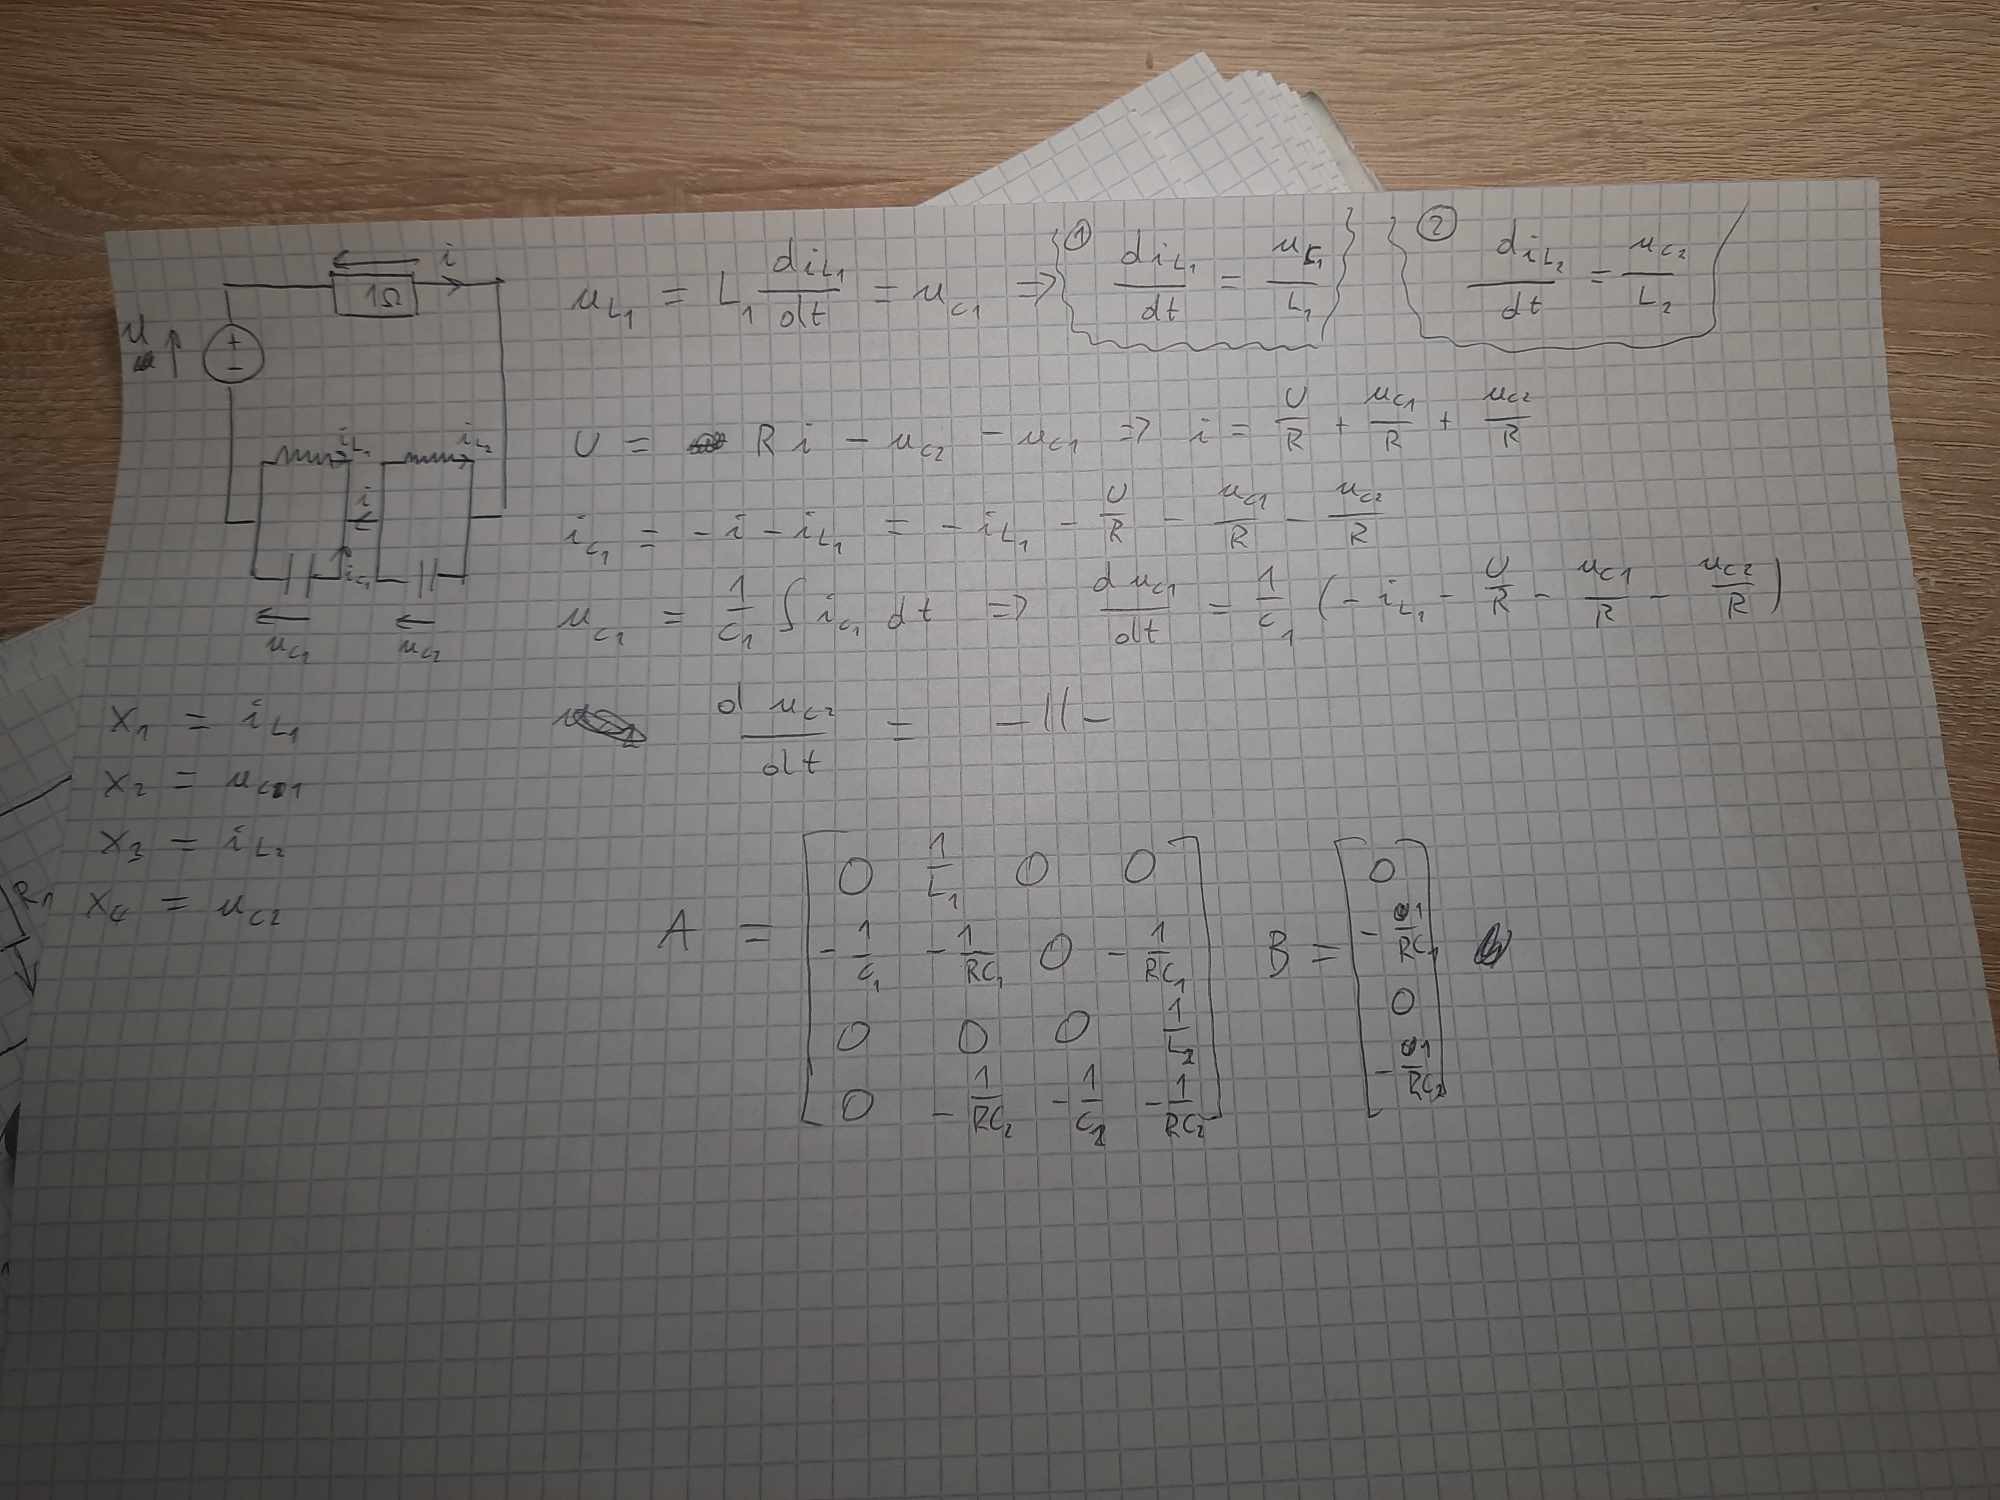 i
1Ω
u
+
−
i_L1
i_L2
i
i_C1
u_C1
u_C2
u_L1 = L_1 di_L1/dt = u_C1 ⇒ ① di_L1/dt = u_C1/L_1 ② di_L2/dt = u_C2/L_2
U = Ri − u_C2 − u_C1 ⇒ i = U/R + u_C1/R + u_C2/R
i_C1 = −i − i_L1 = −i_L1 − U/R − u_C1/R − u_C2/R
u_C1 = 1/C_1 ∫ i_C1 dt ⇒ du_C1/dt = 1/C_1 (−i_L1 − U/R − u_C1/R − u_C2/R)
du_C2/dt = −||−
x_1 = i_L1
x_2 = u_C1
x_3 = i_L2
x_4 = u_C2
A = [0 1/L_1 0 0
−1/C_1 −1/RC_1 0 −1/RC_1
0 0 0 1/L_2
0 −1/RC_2 −1/C_2 −1/RC_2]
B = [0
−1/RC_1
0
−1/RC_2]
R_1